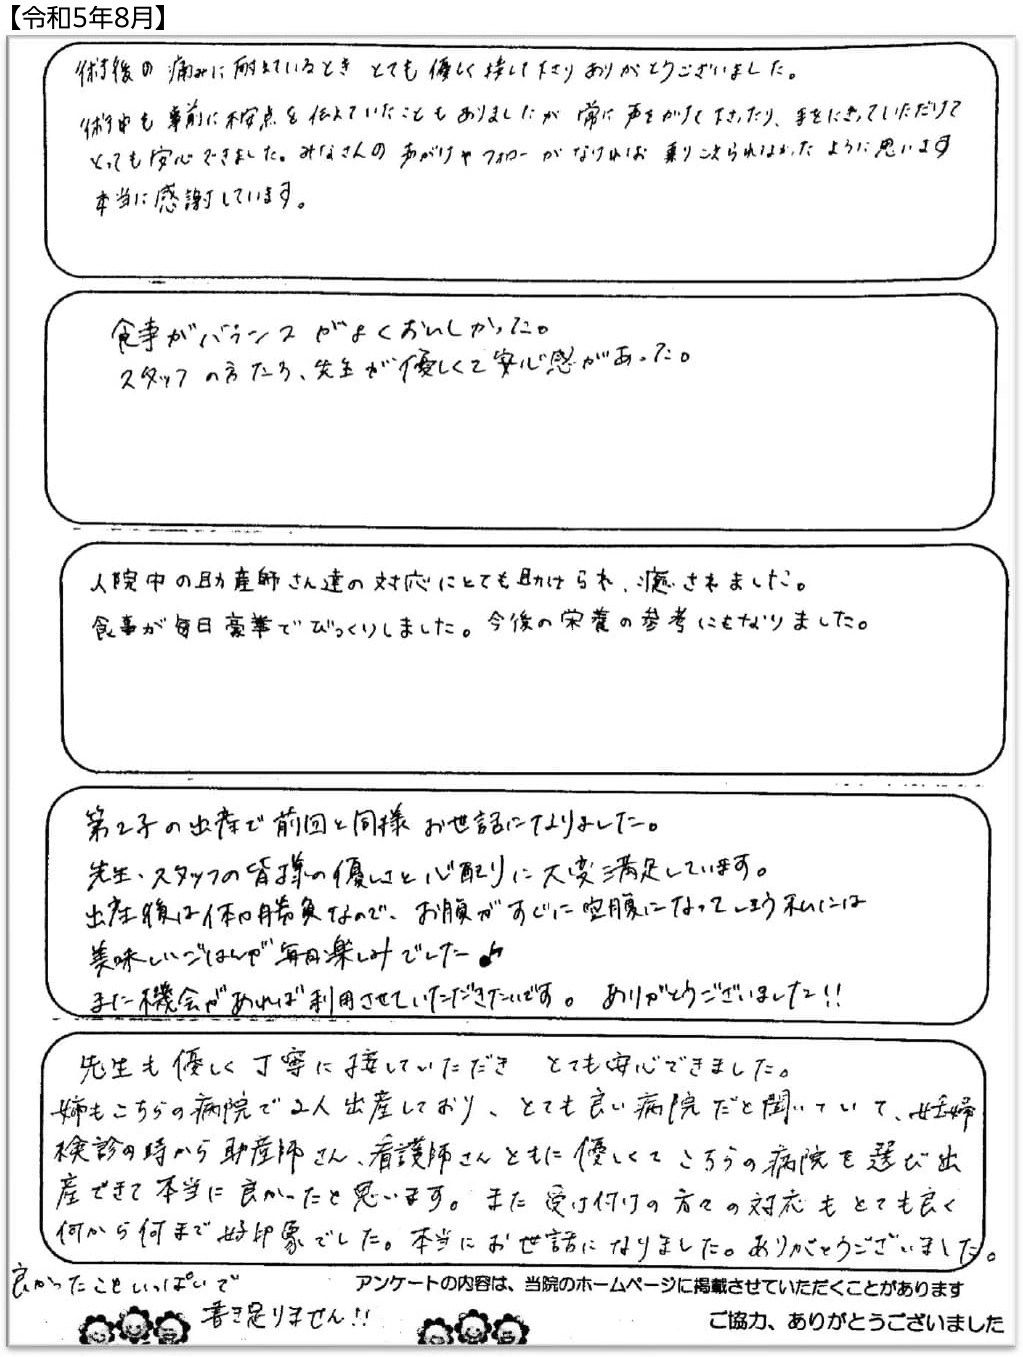 【令和5年8月】
術後の痛みに耐えているとき とても優しく接して下さりありがとうございました。
術中も事前に不安点を伝えていたこともありましたが常に声をかけて下さったり、手をにぎっていただけて
とっても安心できました。みなさんの声がけやフォローがなければ乗りこえられなかったように思います
本当に感謝しています。
食事がバランスがよくおいしかった。
スタッフの方たち、先生が優しくて安心感があった。
入院中の助産師さん達の対応にとても助けられ、癒されました。
食事が毎日豪華でびっくりしました。今後の栄養の参考にもなりました。
第2子の出産で前回と同様お世話になりました。
先生、スタッフの皆様の優しさと心配りに大変満足しています。
出産後は体力勝負なので、お腹がすぐに空腹になってしまう私には
美味しいごはんが毎日楽しみでした♪
また機会があれば利用させていただきたいです。 ありがとうございました!!
先生も優しく丁寧に接していただき とても安心できました。
姉もこちらの病院で2人出産しており、とても良い病院だと聞いていて、妊婦
検診の時から助産師さん、看護師さんともに優しくてこちらの病院を選び出
産できて本当に良かったと思います。また受け付けの方々の対応もとても良く
何から何まで好印象でした。本当にお世話になりました。ありがとうございました。
良かったこといっぱいで
書き足りません!!
アンケートの内容は、当院のホームページに掲載させていただくことがあります
ご協力、ありがとうございました